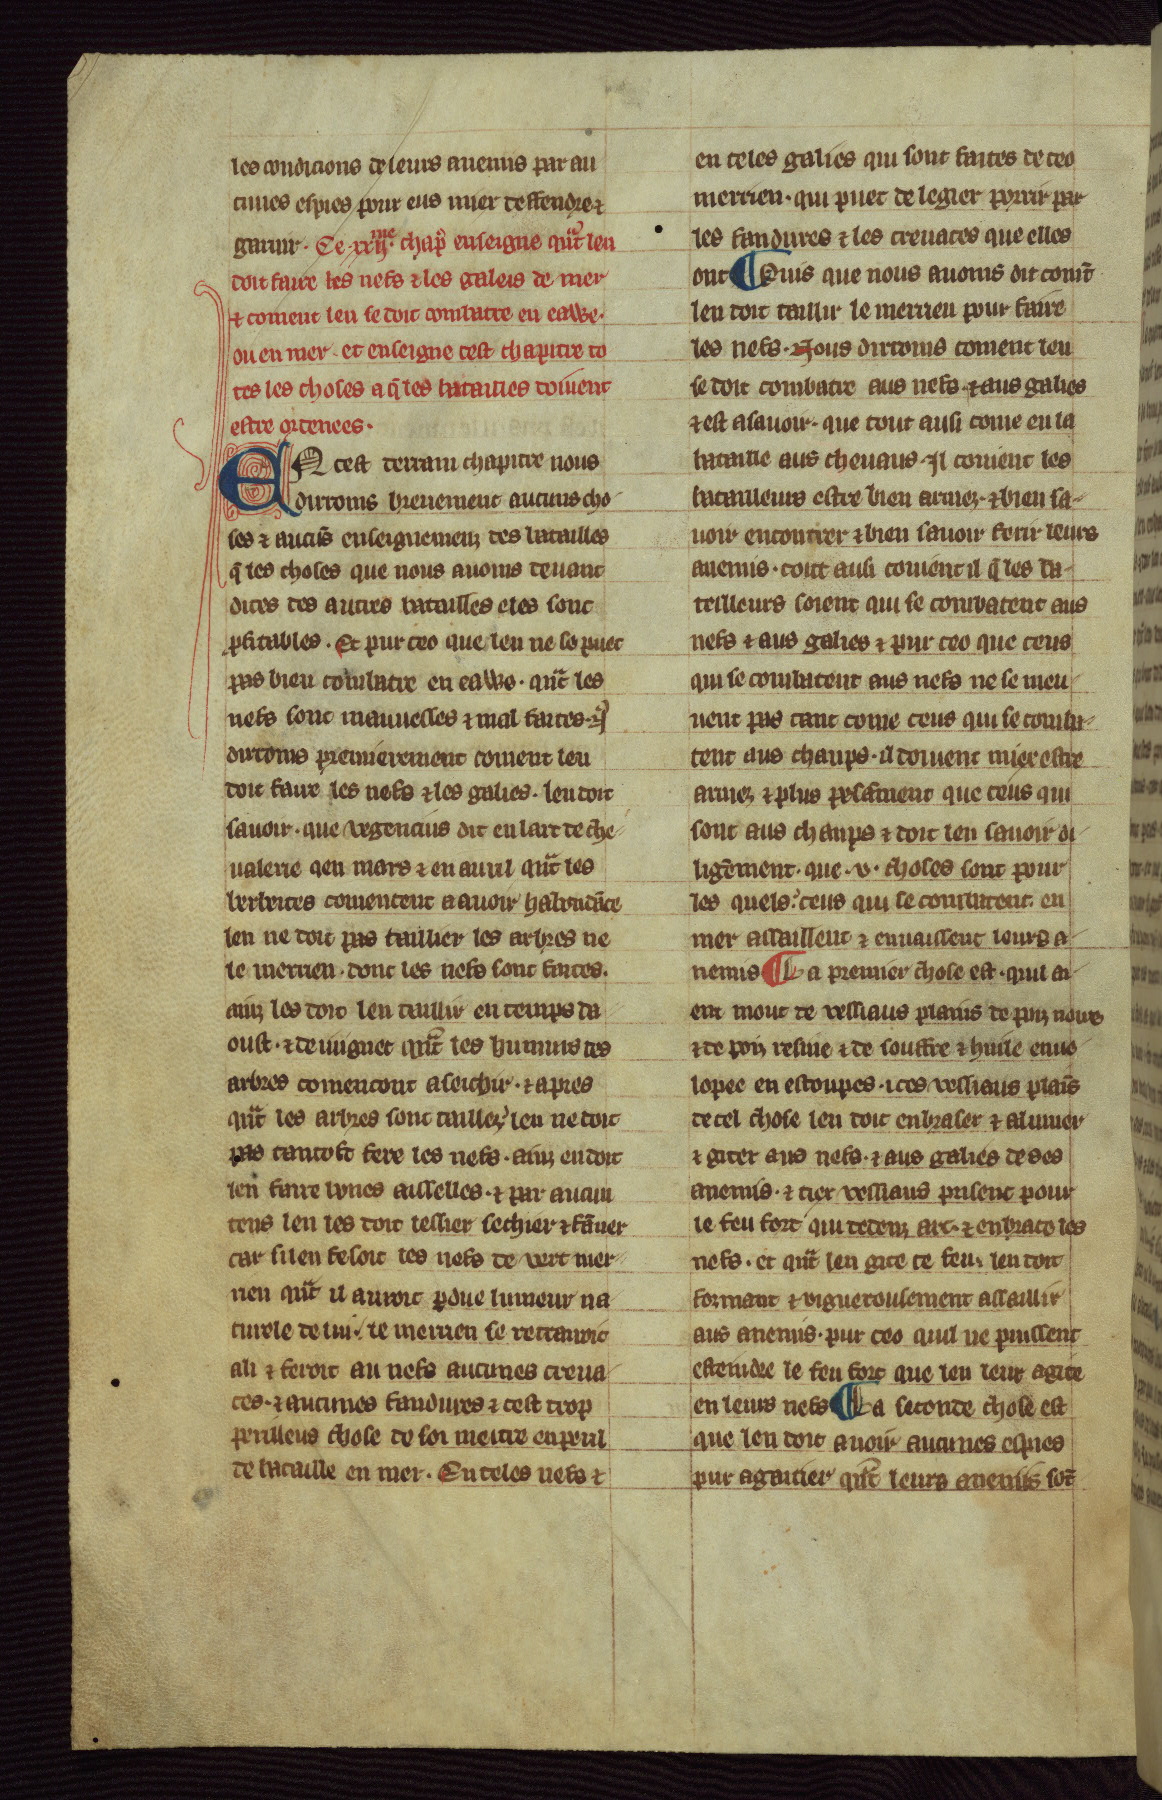 les condicions de leurs anemis par au
cunes espies pour eus mier deffendre ⁊
garnir. Ce .xxiij.me chap̄ enseigne qūt len
doit faire les nefs ⁊ les galeis de mer
⁊ coment len se doit combatre en eawe.
ou en mer. et enseigne cest chapitre to
tes les choses a q̄ les batailles doiuent
estre ordenees.
EN cest derrain chapitre nous
dirroms breuement aucuns cho
ses ⁊ aucūs enseignemenz des batailles
q̄ les choses que nous auoms deuant
dites des autres batailles eles sont
ꝓfitables. Et pur ceo que len ne se puet
pas bien combatre en eawe. qūt les
nefs sont mauuesses ⁊ mal faites.
dirroms premierement coment len
doit faire les nefs ⁊ les galies. len doit
sauoir. que vegencius dit en lart de che
ualerie qen mars ⁊ en auril qūt les
herbettes comencent a auoir habundāce
len ne doit pas taillier les arbres ne
le merrien. dont les nefs sont faites.
ainz les doit len taillir en temps da
oust. ⁊ de iuignet qūt les humurs des
arbres comencont a seichir. ⁊ apres
qūt les arbres sont taillez len ne doit
pas tantost fere les nefs. ainz en doit
len faire lynes aisselles. ⁊ par aucun
tens len les doit lessier sechier ⁊ fāner
car si len fesoit les nefs de vert mer
rien qūt il auroit ꝑdue lumeur na
turele de lui. le merrien se retrairoit
ali ⁊ feroit au nefs aucunes creua
ces. ⁊ aucunes fandures ⁊ cest trop
perilleus chose de soi mettre en peril
de bataille en mer. En teles nefs ⁊
en teles galies qui sont faites de ceo
merrien. qui puet de legier porrir par
les fandures ⁊ les creuaces que elles
ont Puis que nous auoms dit comēt
len doit taillir le merrien pour faire
les nefs. Nous dirroms coment len
se doit combatre aus nefs. ⁊ aus galies
⁊ est asauoir. que tout ausi come en la
bataille aus cheuaus. Il couient les
batailleurs estre bien armez. ⁊ bien sa
uoir encontrer ⁊ bien sauoir ferir leurs
anemis. tout ausi couient il q̄ les ba
teilleurs soient qui se combatent aus
nefs ⁊ aus galies ⁊ pur ceo que ceus
qui se combatent aus nefs ne se meu
uent pas tant come ceus qui se comba
tent aus champs. il doiuent mier estre
armez ⁊ plus pesāment que ceus qui
sont aus champs ⁊ doit len sauoir di
ligēment. que .v. choses sont pour
les quels ceus qui se combatent en
mer assaillent ⁊ enuaissent leurs a
nemis La premier chose est. quil ai
ent mout de vessiaus plains de poiz noire
⁊ de poiz resine ⁊ de souffre ⁊ huile enue
lopee en estoupes. ⁊ ces vessiaus plaīs
de cel chose len doit enbraser ⁊ alumer
⁊ giter aus nefs. ⁊ aus galies de ses
anemis. ⁊ tier vessiaus prisent pour
le feu fort qui dedenz art. ⁊ enbrace les
nefs. et qūt len gite ce feu, len doit
formant ⁊ vigueroulement assaillir
aus anemis. pur ceo quil ne puissent
esteindre le feu fort que len leur agite
en leurs nefs La seconde chose est
que len doit auoir aucunes espies
pur agaitier qūt leurs anemis sōt